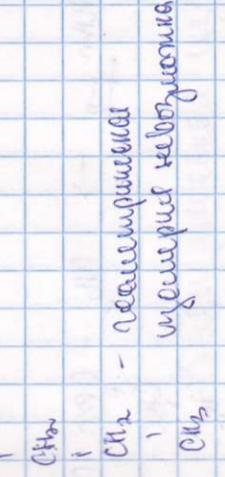 CH₂
CH₂ - геометрическая
изомерия невозможна
CH₃